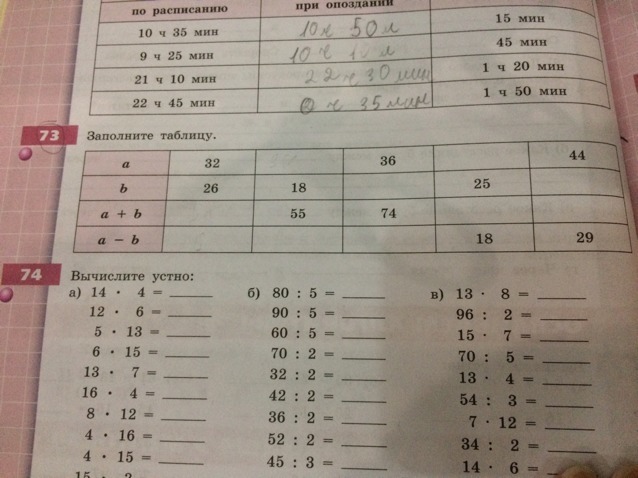 по расписанию при опоздании
10 ч 35 мин 10 ч 50 м 15 мин
9 ч 25 мин 10 ч 45 мин
21 ч 10 мин 22 ч 30 мин 1 ч 20 мин
22 ч 45 мин 0 ч 35 мин 1 ч 50 мин
73 Заполните таблицу.
a 32 36 44
b 26 18 25
a + b 55 74
a − b 18 29
74 Вычислите устно:
а) 14 · 4 = ______ б) 80 : 5 = ______ в) 13 · 8 = ______
12 · 6 = ______ 90 : 5 = ______ 96 : 2 = ______
5 · 13 = ______ 60 : 5 = ______ 15 · 7 = ______
6 · 15 = ______ 70 : 2 = ______ 70 : 5 = ______
13 · 7 = ______ 32 : 2 = ______ 13 · 4 = ______
16 · 4 = ______ 42 : 2 = ______ 54 : 3 = ______
8 · 12 = ______ 36 : 2 = ______ 7 · 12 = ______
4 · 16 = ______ 52 : 2 = ______ 34 : 2 = ______
4 · 15 = ______ 45 : 3 = ______ 14 · 6 = ______